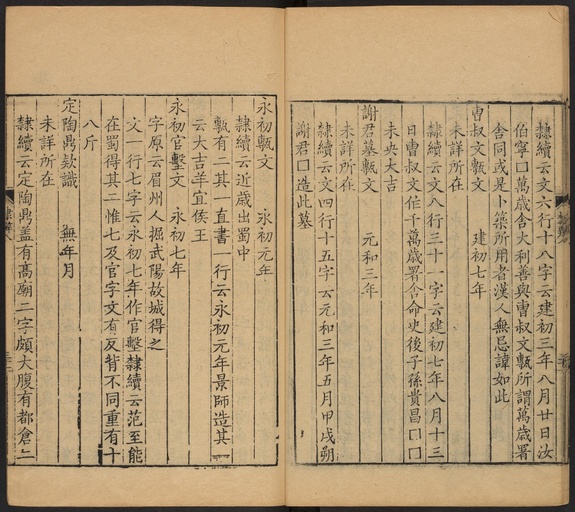 隸續云文六行十八字云建初三年八月廿日汝
伯寧口萬歲舍大利善與曹叔文甎所謂萬歲署
舍同或是卜築所用者漢人無忌諱如此
曹叔文甎文　建初七年
未詳所在
隸續云文八行三十一字云建初七年八月十三
日曹叔文作千萬歲署舍命史後子孫貴昌口口
未央大吉
謝君墓甎文　元和三年
未詳所在
隸續云文四行十五字云元和三年五月甲戌朔
謝君口造此墓
永初甎文　永初元年
隸續云近歲出蜀中
甎有二其一直書一行云永初元年景師造其一
云大吉羊宜侯王
永初官墼文　永初七年
字原云眉州人掘武陽故城得之
文一行七字云永初七年作官墼隸續云范至能
在蜀得其二惟七及官字文有反背不同重有十
八斤
定陶鼎欵識　無年月
未詳所在
隸續云定陶鼎盖有高廟二字頗大腹有都倉二